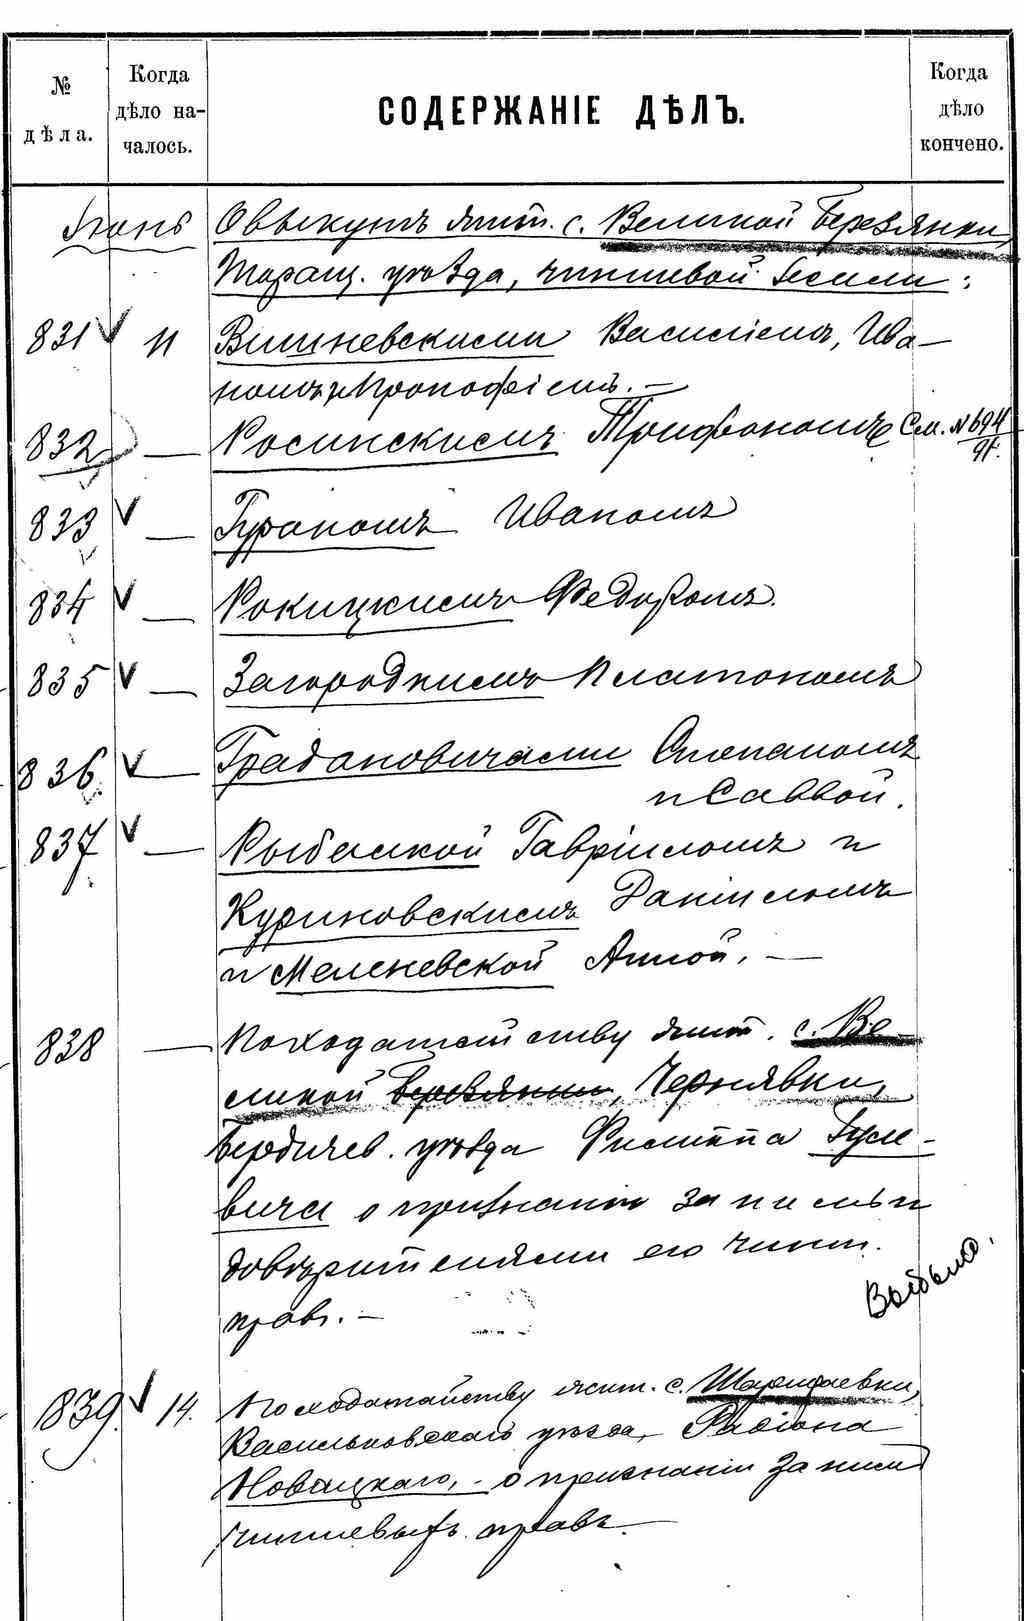 №
дѣла.
Когда
дѣло на-
чалось.
СОДЕРЖАНІЕ ДѢЛЪ.
Когда
дѣло
кончено.
Іюнь
О выкупѣ жит. с. Великой Березянки,
Таращ. уѣзда, чиншевой земли:
831 11 Вишневскими Василіемъ, Ива-
номъ и Прокофіемъ. —
832 — Росинскимъ Трифономъ См. №694/91.
833 — Гураномъ Иваномъ
834 — Рокицкимъ Федоромъ.
835 — Загороднимъ Платономъ
836 — Градановичами Степаномъ
и Саввой.
837 — Рыбачкой Гавріиломъ и
Куриновскимъ Даніиломъ
и Меленевской Анной. —
838 — По ходатайству жит. с. Ве-
ликой Березянки, Чернявки,
Бердичев. уѣзда Филиппа Гуле-
вича о признаніи за нимъ и
довѣрителями его чинш.
правъ. —
Выбыло.
839. 14. По ходатайству жит. с. Шарифаевки,
Васильковскаго уѣзда, Радіона
Новацкаго, - о признаніи за нимъ
чиншевыхъ правъ. —